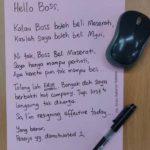 Hello Boss,
Kalau Boss boleh beli Maserati,
Kasilah saya boleh beli Myvi.
Ni tak, Boss Bel Maserati,
Saya hanya mampu perhati,
Apa benda pun tak mampu beli.
Tolong lah Boss. Banyak dah saya
berbakti kat company. Tapi
langsung tak dihargai.
So, I'm resigning effective today...
Yang benar,
Pekerja yg demotivated